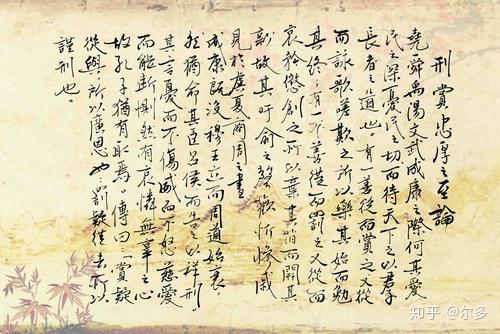 刑賞忠厚之至論
堯舜禹湯文武成康之際何其愛
民之深憂民之切而待天下之以君子
長者之道也。有一善從而賞之又從
而詠歌嗟歎之所以樂其始而勉
其終；有一不善從而罰之又從而
哀矜懲創之所以棄其舊而開其
新故其吁俞之聲歡忻慘戚
見於虞夏商周之書
成康既沒穆王立而周道始衰
然猶命其臣呂侯而告之以祥刑。
其言憂而不傷威而不怒慈愛
而能斷惻然有哀憐無辜之心
故孔子猶有取焉。傳曰「賞疑
從與所以廣恩也罰疑從去所以
謹刑也。
知乎 @尔多